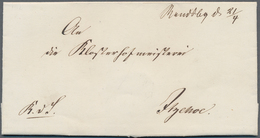 Rendsbg d. 21/4
An
die Klosterhofmeisterei
K. d. S.
Itzehoe.